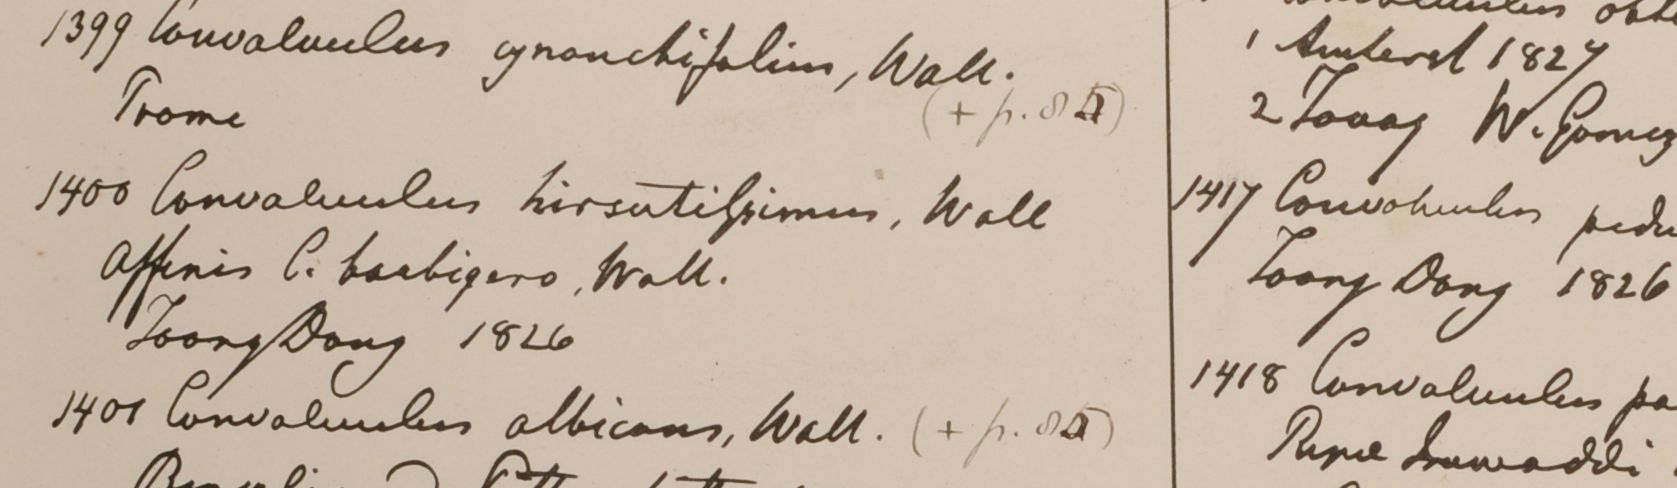 1399 Convolvulus cynanchifolius, Wall.
(+ p. 85)
Prome
1400 Convolvulus hirsutissimus, Wall
Affinis C. barbigero, Wall.
Toong Dong 1826
1401 Convolvulus albicans, Wall. (+ p. 85)
Convolvulus
1 Amherst 1827
2 Tavoy W. Gomez
1417 Convolvulus pedu
Toong Dong 1826
1418 Convolvulus pa
Ripae Irawaddi